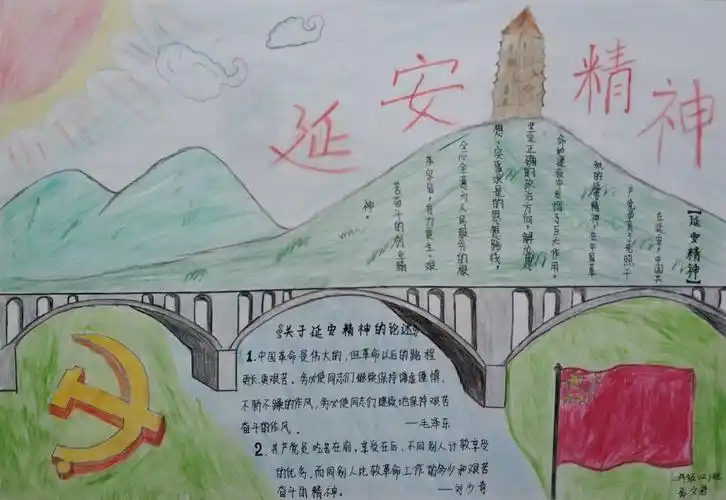 延安精神
【延安精神】
在延安,中国共
产党孕育了光照千
秋的延安精神,在中国革
命的建设中发挥了巨大作用。
坚定正确的政治方向,解放思
想、实事求是的思想路线,
全心全意为人民服务的根
本宗旨,自力更生、艰
苦奋斗的创业精
神。
《关于延安精神的论述》
1.中国革命是伟大的,但革命以后的路程
更长更艰苦。务必使同志们继续保持谦虚谨慎,
不骄不躁的作风,务必使同志们继续地保持艰苦
奋斗的作风。 —毛泽东
2.共产党员吃苦在前,享受在后,不同别人计较享受
的优劣,而同别人比较革命工作的多少和艰苦
奋斗的精神。 —刘少奇